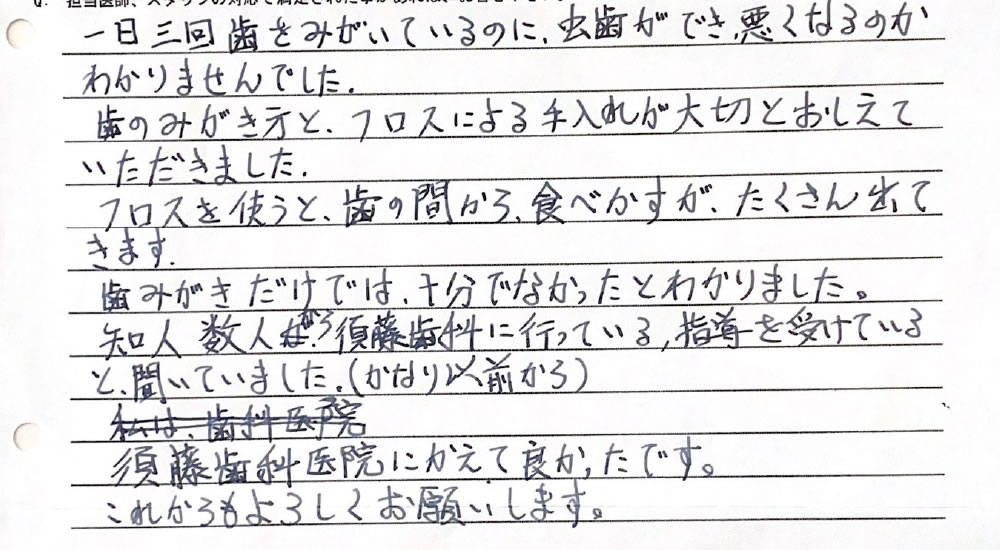 担当医師、スタッフの対応で満足された事があれば、お書き
一日三回歯をみがいているのに、虫歯ができ、悪くなるのか
わかりませんでした.
歯のみがき方と、フロスによる手入れが大切とおしえて
いただきました.
フロスを使うと、歯の間から、食べかすが、たくさん出て
きます.
歯みがきだけでは、十分でなかったとわかりました。
知人 数人から須藤歯科に行っている,指導を受けている
と、聞いていました.(かなり以前から)
私は、歯科医院
須藤歯科医院にかえて良かったです。
これからもよろしくお願いします。